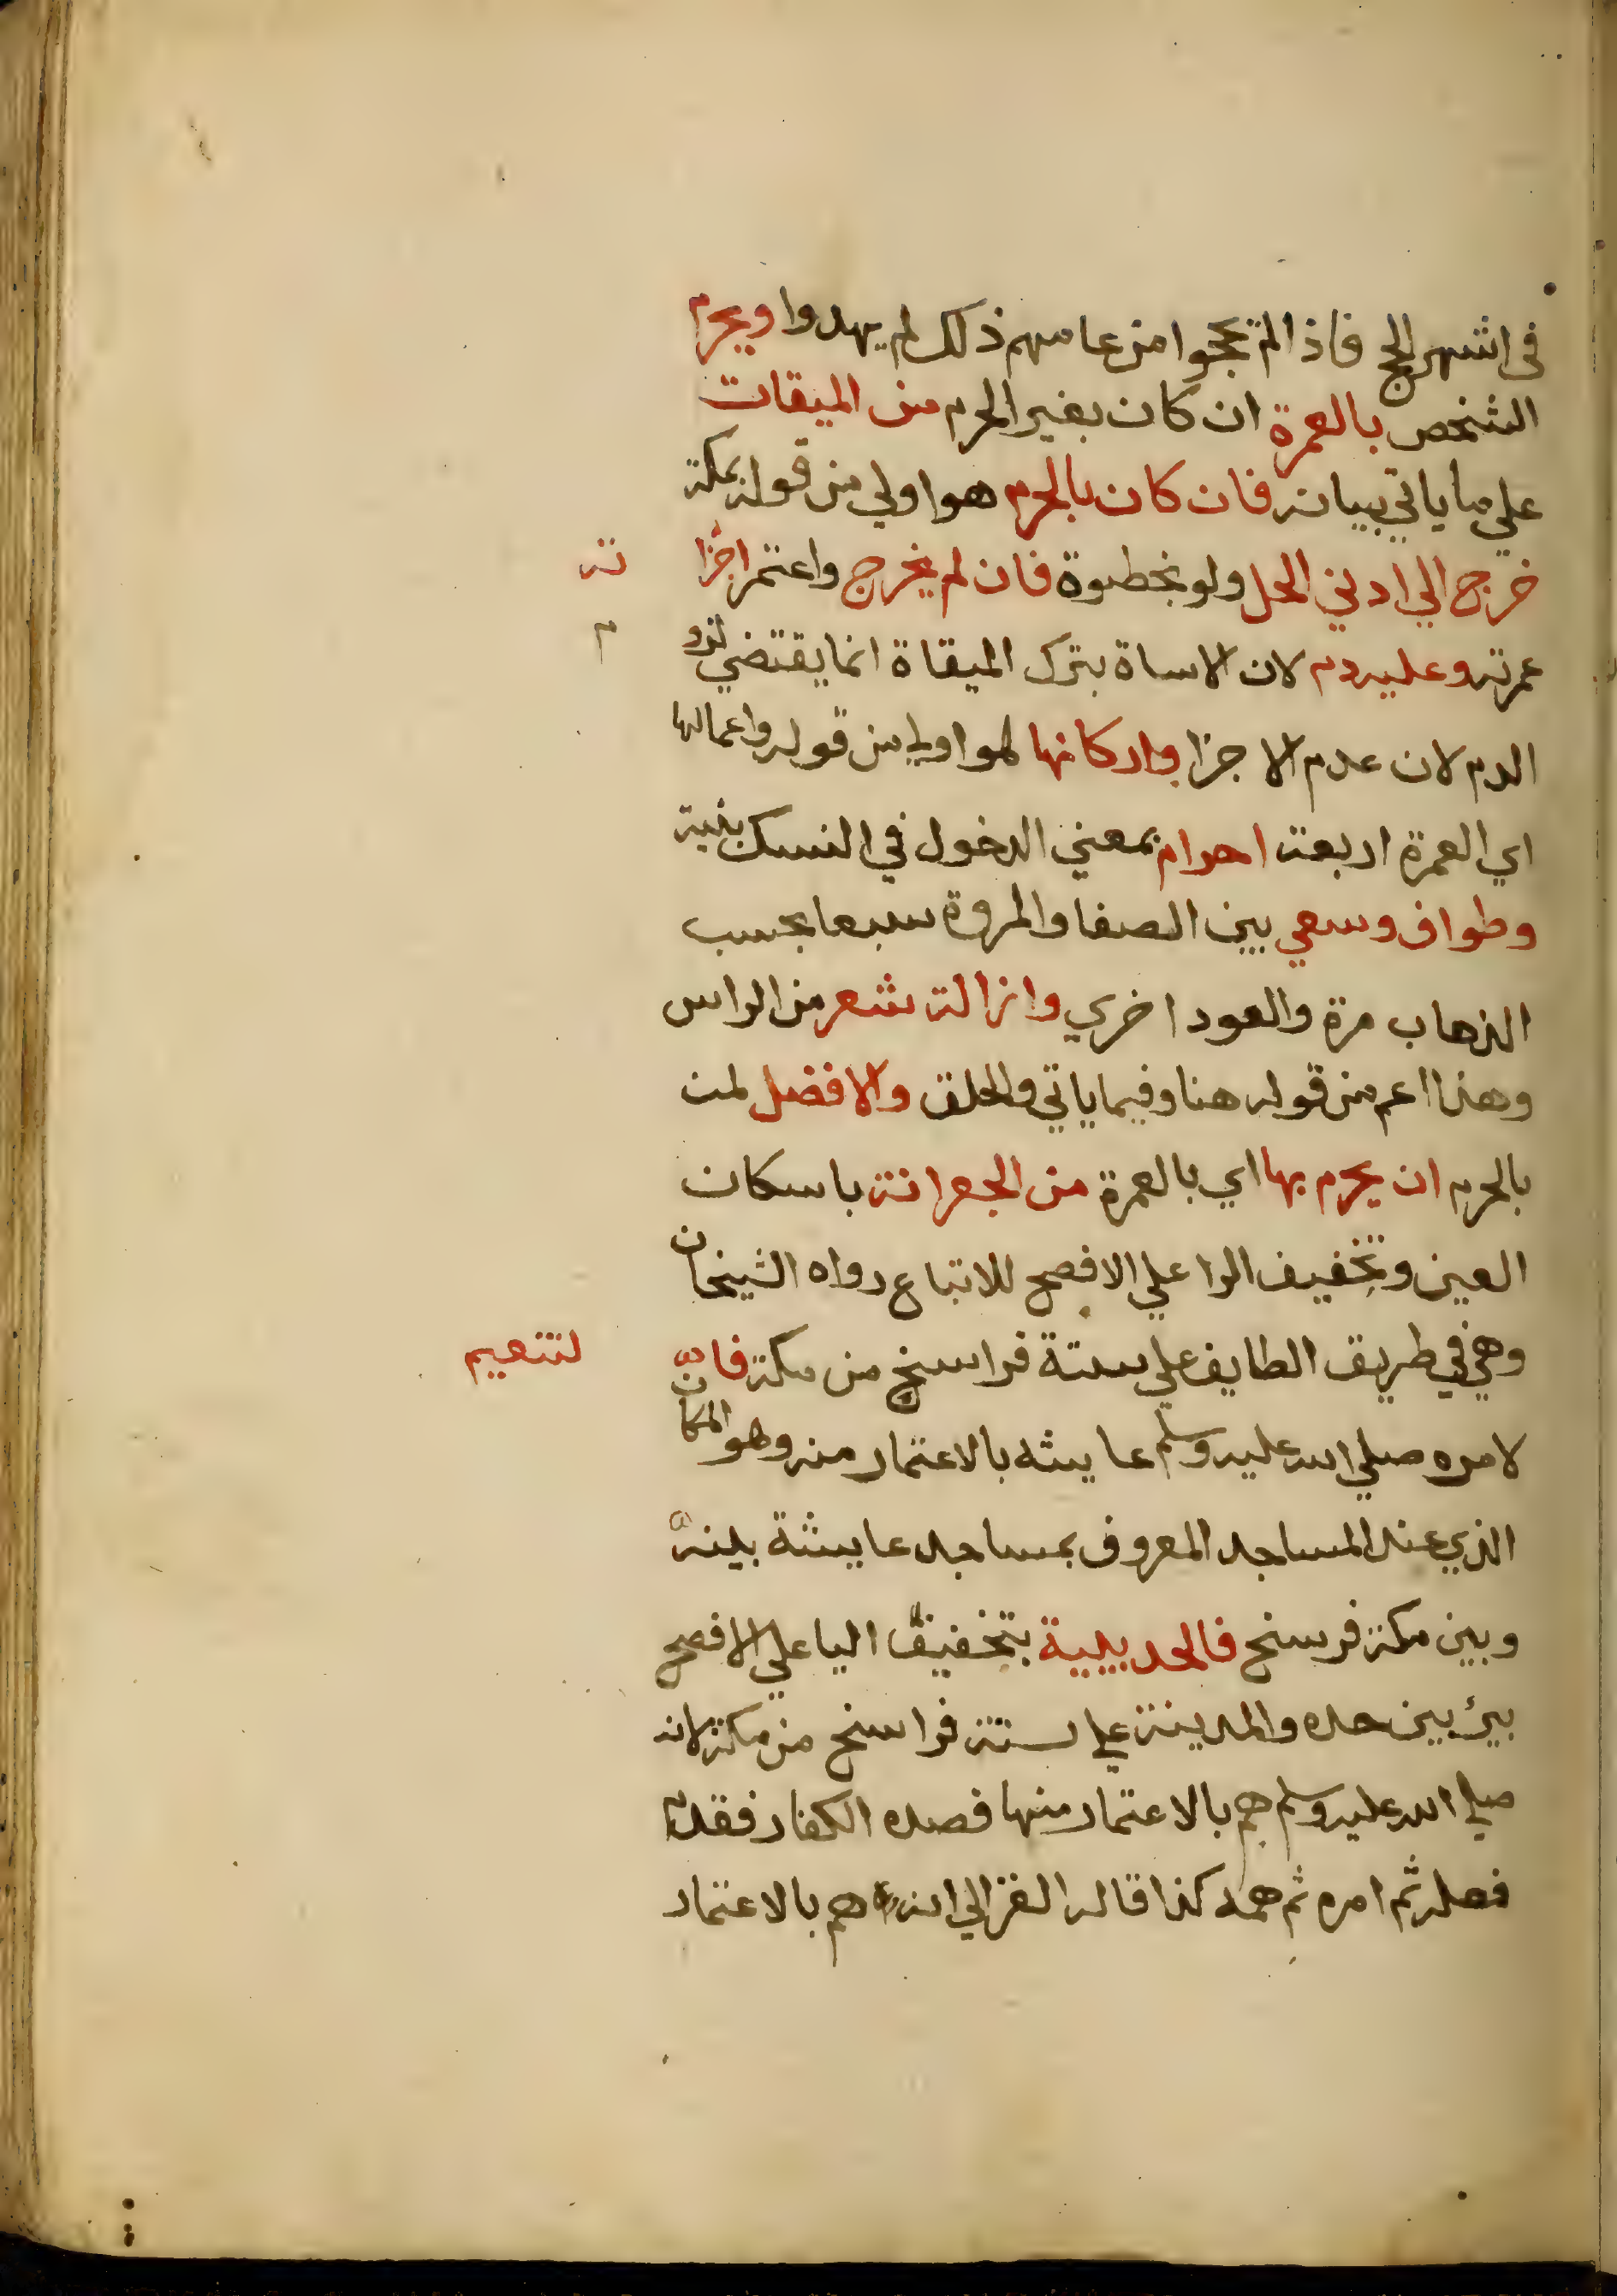 في اشهر الحج فاذا لم يحجوا من عامهم ذلك لم يهدوا ويحرم
الشخص بالعمرة ان كان بغير الحرم من الميقات
علي ما ياتي بيانه فان كان بالحرم هو اولي من قوله بمكة
خرج الي ادني الحل ولو بخطوة فان لم يخرج واعتمر اجزا ته
عمرته وعليه دم لان الاساة بترك الميقاة انما يقتضي لزو م
الدم لان عدم الاجزا واركانها هو اولي من قوله واعمالها
اي العمرة اربعة احرام بمعني الدخول في النسك بنية
وطواف وسعي بين الصفا والمروة سبعا بحسب
الذهاب مرة والعود اخري وازالة شعر من الراس
وهذا اعم من قوله هنا وفيما ياتي والحلق والافضل لمن
بالحرم ان يحرم بها اي بالعمرة من الجعرانة باسكان
العين وتخفيف الرا علي الافصح للاتباع رواه الشيخان
وهي في طريق الطايف علي ستة فراسخ من مكة فا لتنعيم
لامره صلي الله عليه وسلم عايشه بالاعتمار منه وهو المكان
الذي عند المساجد المعروف بمساجد عايشة بينه
وبين مكة فرسخ فالحديبية بتخفيف اليا علي الافصح
بئر بين حده والمدينة علي ستة فراسخ من مكة لانه
صلي الله عليه وسلم هم بالاعتمار منها فصده الكفار فقدم
فعله ثم امره ثم همه كذا قاله الغزالي انه هم بالاعتمار